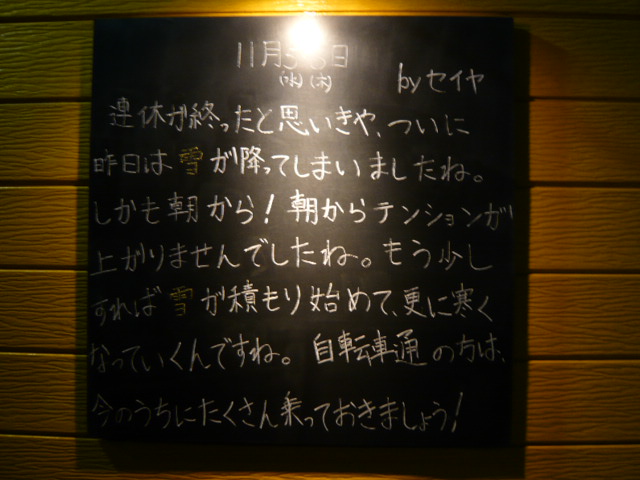 11月5 6日
(水)(木)
byセイヤ
連休が終ったと思いきや、ついに
昨日は雪が降ってしまいましたね。
しかも朝から！朝からテンションが
上がりませんでしたね。もう少し
すれば雪が積もり始めて、更に寒く
なっていくんですね。自転車通の方は、
今のうちにたくさん乗っておきましょう！